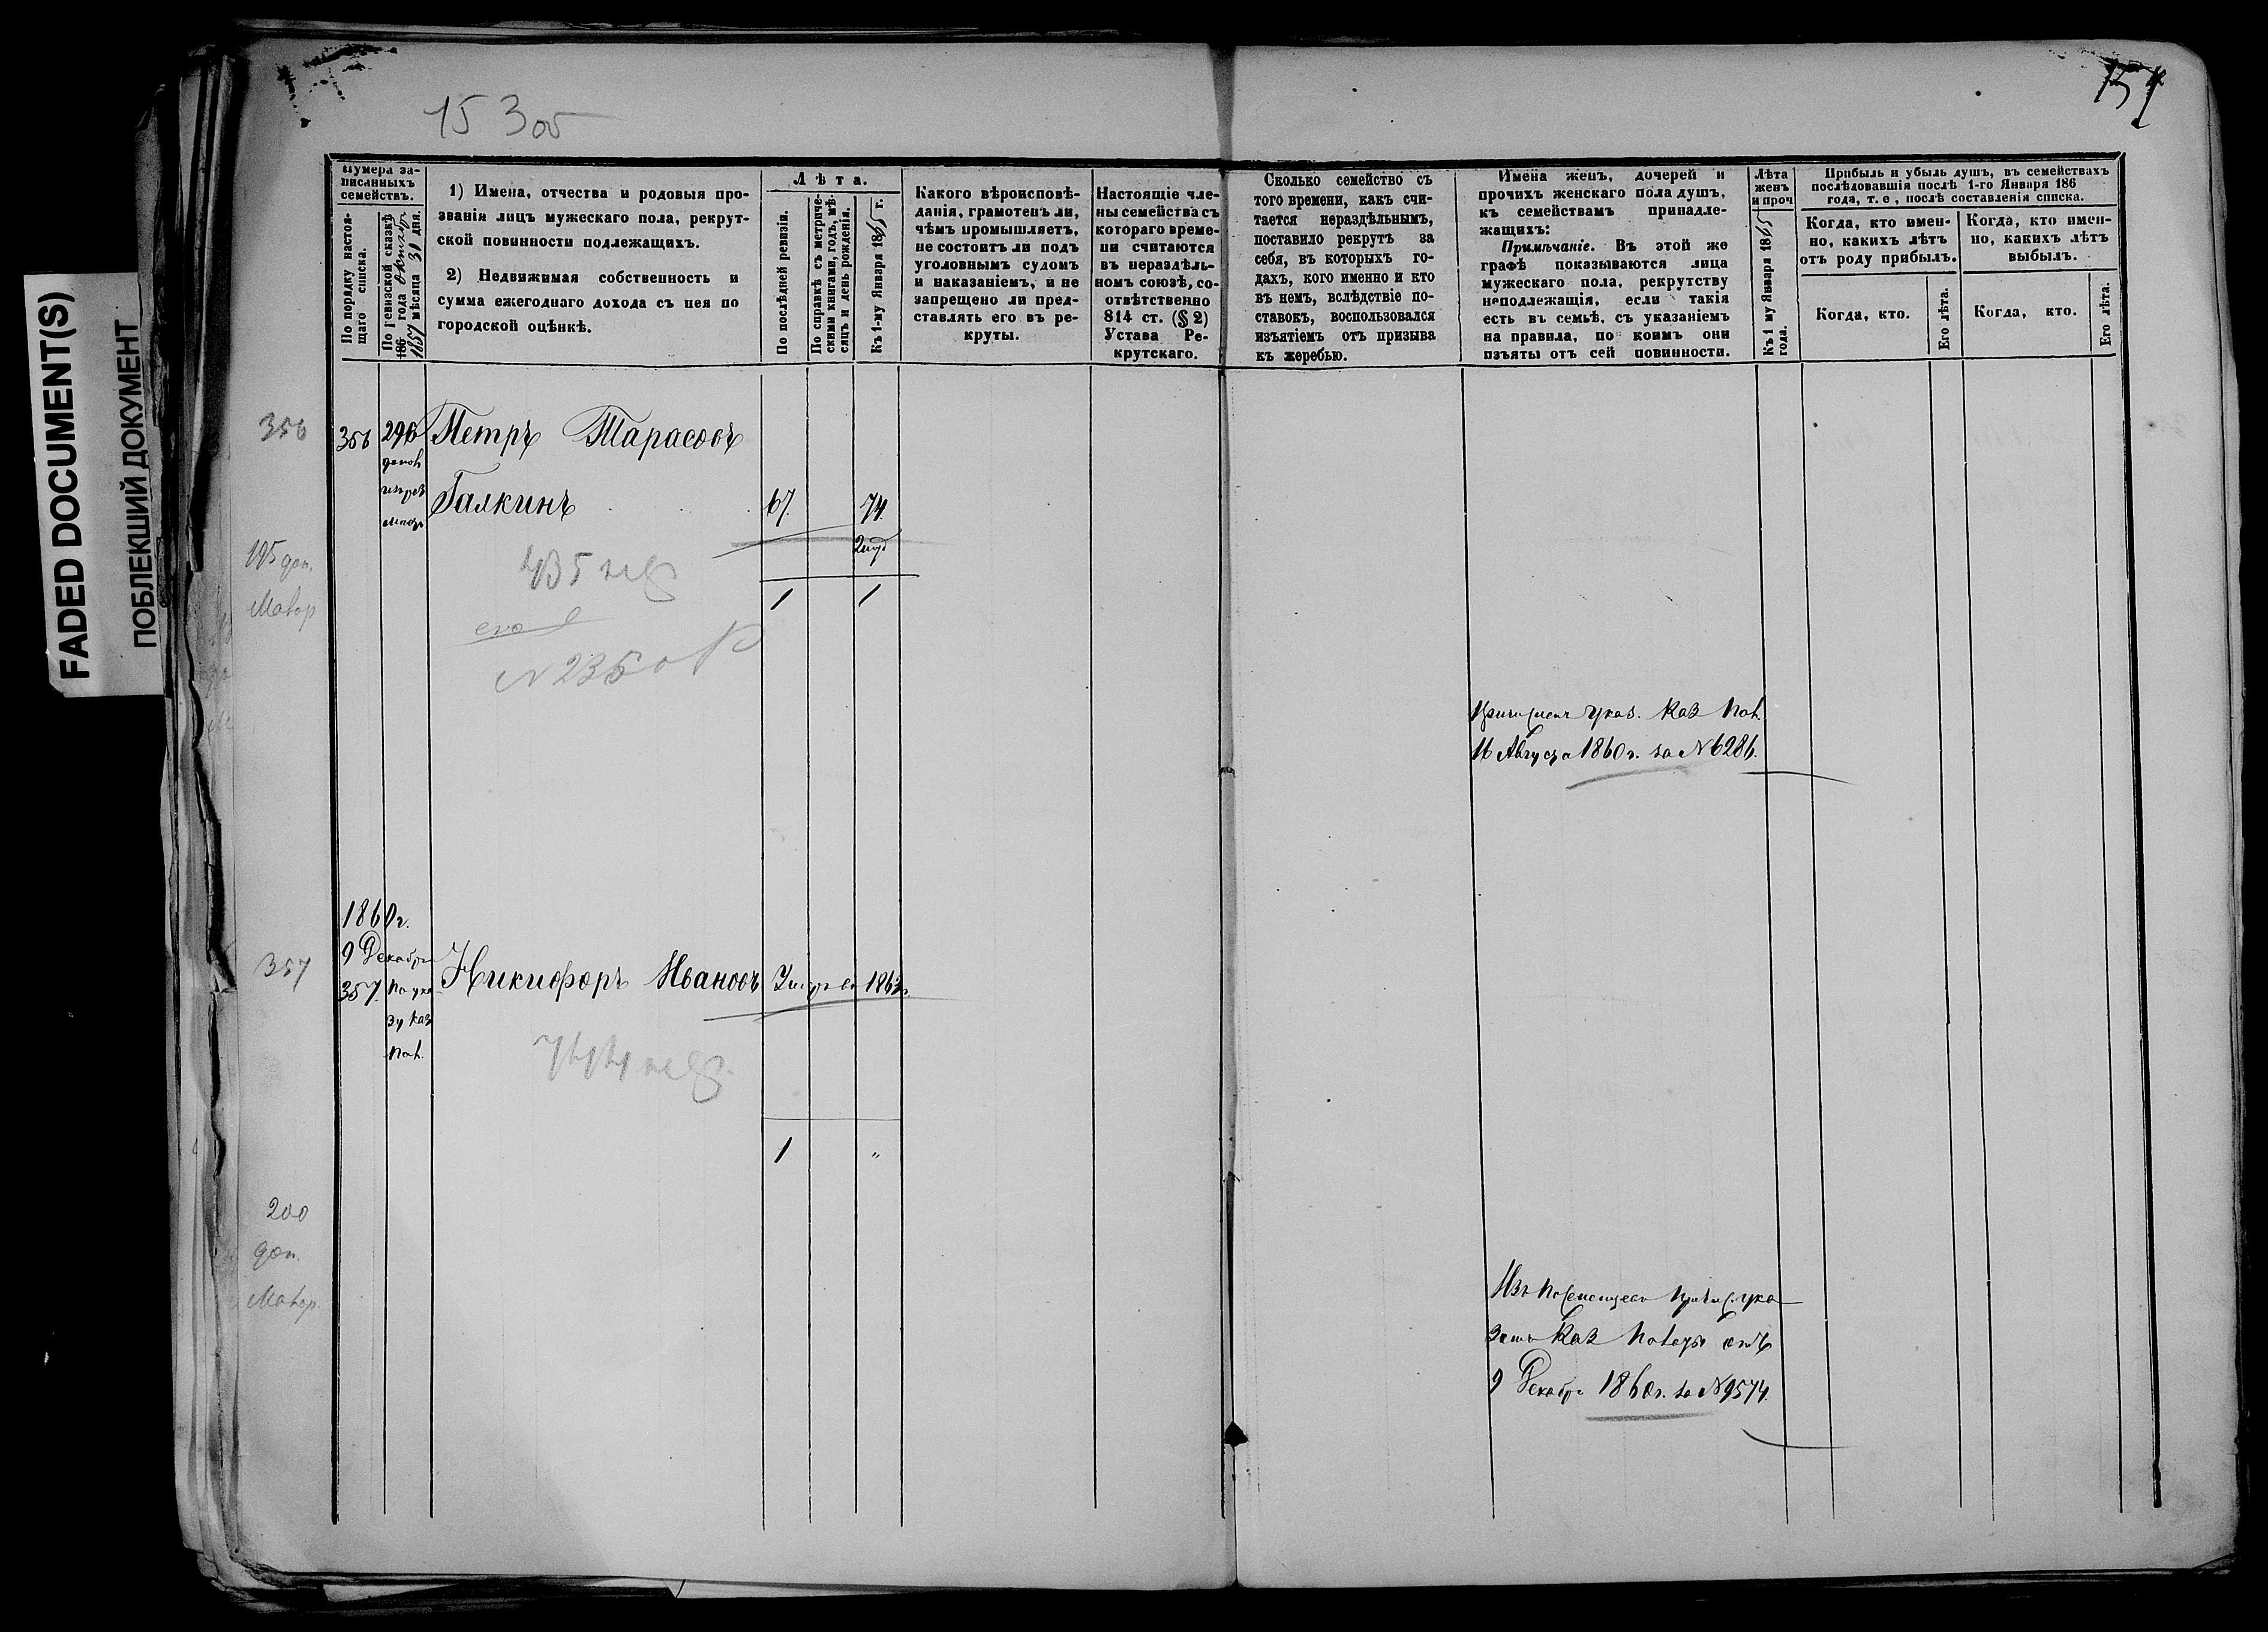 FADED DOCUMENT(S)
ПОБЛЕКШИЙ ДОКУМЕНТ
153об
154
Нумера за-
писанныхъ
семействъ.
По порядку настоя-
щаго списка.
По ревизской сказкѣ
186 года октября
1857 мѣсяца 31 дня.
1) Имена, отчества и родовыя про-
званія лицъ мужескаго пола, рекрут-
ской повинности подлежащихъ.
2) Недвижимая собственность и
сумма ежегоднаго дохода съ нея по
городской оцѣнкѣ.
Лѣта.
По послѣдней ревизіи.
По справкѣ съ метриче-
скими книгами, годъ, мѣ-
сяцъ и день рожденія.
Къ 1-му Января 1865 г.
Какого вѣроисповѣ-
данія, грамотенъ ли,
чѣмъ промышляетъ,
не состоитъ ли подъ
уголовнымъ судомъ
и наказаніемъ, и не
запрещено ли пред-
ставлять его въ ре-
круты.
Настоящіе чле-
ны семейства съ
котораго време-
ни считаются
въ нераздѣль-
номъ союзѣ, со-
отвѣтственно
814 ст. (§ 2)
Устава Ре-
крутскаго.
Сколько семейство съ
того времени, какъ счи-
тается нераздѣльнымъ,
поставило рекрутъ за
себя, въ которыхъ го-
дахъ, кого именно и кто
въ немъ, вслѣдствіе по-
ставокъ, воспользовался
изъятіемъ отъ призыва
къ жеребью.
Имена женъ, дочерей и
прочихъ женскаго пола душъ,
къ семействамъ принадле-
жащихъ:
Примѣчаніе. Въ этой же
графѣ показываются лица
мужескаго пола, рекрутству
неподлежащія, если такія
есть въ семьѣ, съ указаніемъ
на правила, по коимъ они
изъяты отъ сей повинности.
Лѣта
женъ
и проч
Къ 1 му Января 1865
года.
Прибыль и убыль душъ, въ семействахъ
послѣдовавшія послѣ 1-го Января 186
года, т. е, послѣ составленія списка.
Когда, кто имен-
но, какихъ лѣтъ
отъ роду прибылъ.
Когда, кто имен-
но, какихъ лѣтъ
выбылъ.
Когда, кто.
Его лѣта.
Когда, кто.
Его лѣта.
356
356
296
Петръ Тарасовъ
Галкинъ
67.
74.
195 доп.
435
1
1
N 235
Каз Пал.
16 Августа 1860 г. за N 6286.
1860 г.
9 Декабря
357
357.
По ука
зу каз
Пал.
Никифоръ Ивановъ
Умеръ въ 1863 г.
744
1
"
200
доп.
ука
зомъ Каз Палаты отъ
9 Декабря 1860 г. за N 9574.